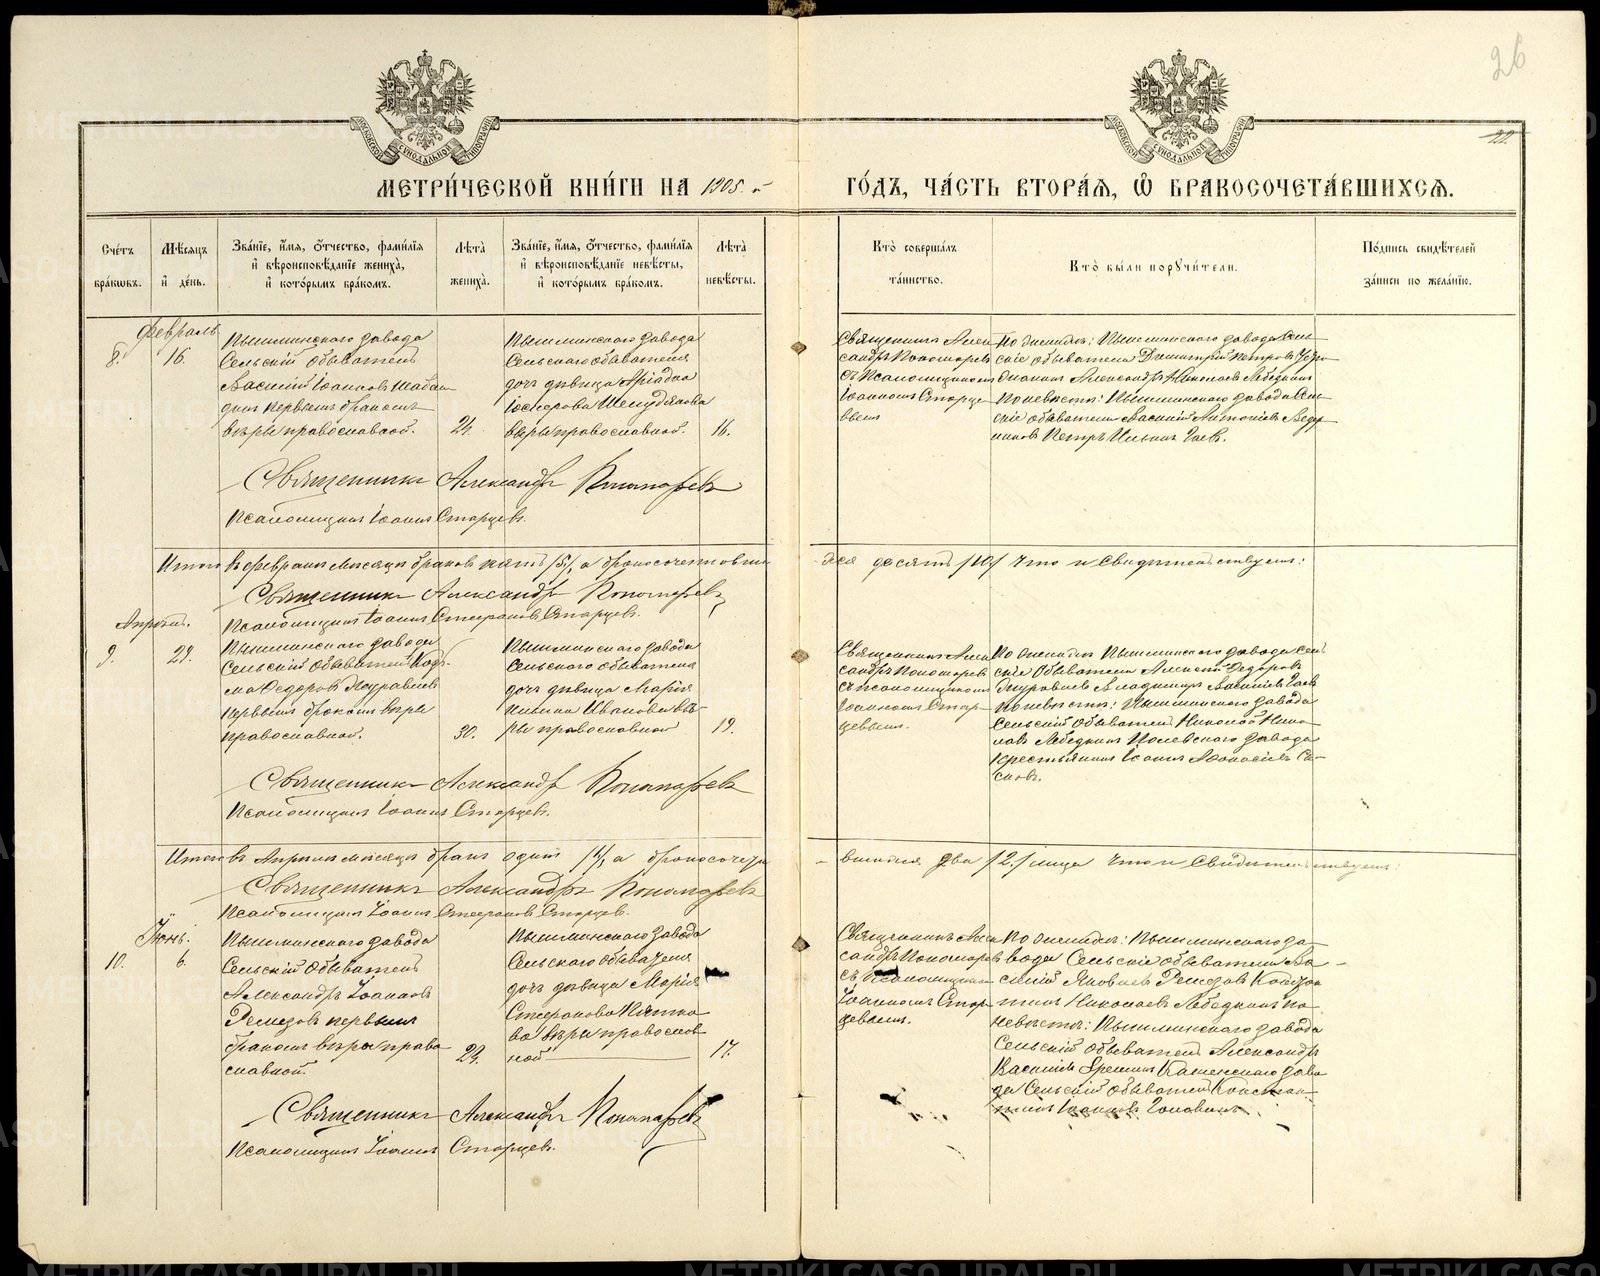 26
22.
МЕТРИ́ЧЕСКОЙ КНИ́ГИ НА 1905.й
ГО́ДЪ, ЧА́СТЬ ВТОРА́Я, Ѽ БРАКОСОЧЕТА́ВШИХСѦ.
Сче́тъ бра́кѡвъ.
Мѣ́сѧцъ и҆ де́нь.
Зва́нїе, и҆́мѧ, ѻ҆́тчество, фами́лїѧ
и҆ вѣроисповѣ́данїе жениха̀,
и҆ кото́рымъ бра́комъ.
Лѣ́та жениха̀.
Зва́нїе, и҆́мѧ, ѻ҆́тчество, фами́лїѧ
и҆ вѣроисповѣ́данїе невѣ́сты,
и҆ кото́рымъ бра́комъ.
Лѣ́та невѣ́сты.
Кто̀ соверша́лъ
та́инство.
Кто̀ бы́ли порꙋчи́тели.
По́дпись свидѣ́телей
за́писи по жела́нїю.
Февраль
8.
16.
Пышминскаго завода
Сельскій обыватель
Василій Іоанновъ
первымъ бракомъ
вѣры православной.
24.
Пышминскаго завода
Сельскаго обывателя
дочь дѣвица
вѣры православной.
16.
Священникъ Алек
сандръ Пономаревъ
съ Псаломщикомъ
Іоанномъ Старце
вымъ
По женихѣ: Пышминскаго завода Сель
скіе обыватели Димитрій Петровъ
Александръ Николаевъ Лебедкинъ
По невѣстѣ: Пышминскаго завода Сель
скіе обыватели Василій Антоновъ Ведер
никовъ Петръ Ильинъ Гаевъ.
Священникъ Александръ Пономаревъ
Псаломщикъ Іоаннъ Старцевъ.
Итого въ февралѣ мѣсяцѣ браковъ пять /5/, а бракосочетавши-
хся десять /10/ что и свидѣтельствуемъ:
Священникъ Александръ Пономаревъ
Псаломщикъ Іоаннъ Стефановъ Старцевъ.
Апрѣль.
9.
29.
Пышминскаго завода
Сельскій обыватель Козь-
ма Федоровъ Журавлевъ
первымъ бракомъ вѣры
православной.
30.
Пышминскаго завода
Сельскаго обывателя
дочь дѣвица Марія
Иванова вѣ-
ры православной
19.
Священникъ Алек
сандръ Пономаревъ
съ псаломщикомъ
Іоанномъ Стар-
цевымъ.
По женихѣ Пышминскаго завода сель
скіе обыватели Алексѣй Федоровъ
Журавлевъ Владимиръ Васильевъ Гаевъ
По невѣстѣ: Пышминскаго завода
Сельскій обыватель Николай Нико
лаевъ Лебедкинъ Полевскаго завода
крестьянинъ Іоаннъ Аѳонасьевъ
Священникъ Александръ Пономаревъ
Псаломщикъ Іоаннъ Старцевъ.
Итого въ Апрѣлѣ мѣсяцѣ бракъ одинъ /1/, а бракосочета-
вшихся два /2/ лица что и свидѣтельствуемъ:
Священникъ Александръ Пономаревъ
Псаломщикъ Іоаннъ Стефановъ Старцевъ.
Іюнь.
10.
6.
Пышминскаго завода
Сельскій обыватель
Александръ Іоанновъ
Ремезовъ первымъ
бракомъ вѣры право
славной.
24.
Пышминскаго завода
Сельскаго обывателя
дочь дѣвица Марія
Стефанова
ва вѣры православ
ной
17.
Священникъ Алек
сандръ Пономаревъ
съ Псаломщикомъ
Іоанномъ Стар-
цевымъ.
По женихѣ: Пышминскаго за-
вода Сельскіе обыватели Ва-
силій Яковлевъ Ремезовъ Констан
тинъ Николаевъ Лебедкинъ по
невѣстѣ: Пышминскаго завода
Сельскій обыватель Александръ
Василіевъ Ереминъ Каменскаго заво
да Сельскій обыватель Констан-
тинъ Іоанновъ Головинъ
Священникъ Александръ Пономаревъ
Псаломщикъ Іоаннъ Старцевъ.
METRIKI.GASO-URAL.RU